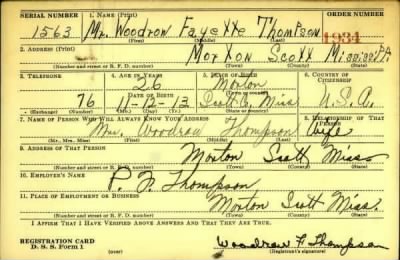 SERIAL NUMBER 1. NAME (Print) ORDER NUMBER
1563 Mr. Woodrow Fayette Thompson 1934
(First) (Middle) (Last)
2. ADDRESS (Print)
Morton Scott Mississippi
(Number and street or R. F. D. number) (Town) (County) (State)
3. TELEPHONE 4. AGE IN YEARS 5. PLACE OF BIRTH 6. COUNTRY OF CITIZENSHIP
26 Morton
DATE OF BIRTH
76 11-12-13 Scott Co. Miss U.S.A.
(Exchange) (Number) (Mo.) (Day) (Yr.) (State or country)
7. NAME OF PERSON WHO WILL ALWAYS KNOW YOUR ADDRESS 8. RELATIONSHIP OF THAT PERSON
Mrs. Woodrow Thompson Wife
(Mr., Mrs., Miss) (First) (Middle) (Last)
9. ADDRESS OF THAT PERSON
Morton Scott Miss
(Number and street or R. F. D. number) (Town) (County) (State)
10. EMPLOYER'S NAME
Thompson
11. PLACE OF EMPLOYMENT OR BUSINESS
Morton Scott Miss.
(Number and street or R. F. D. number) (Town) (County) (State)
I AFFIRM THAT I HAVE VERIFIED ABOVE ANSWERS AND THAT THEY ARE TRUE.
REGISTRATION CARD
D. S. S. Form 1 (over) Woodrow F Thompson
(Registrant's signature)